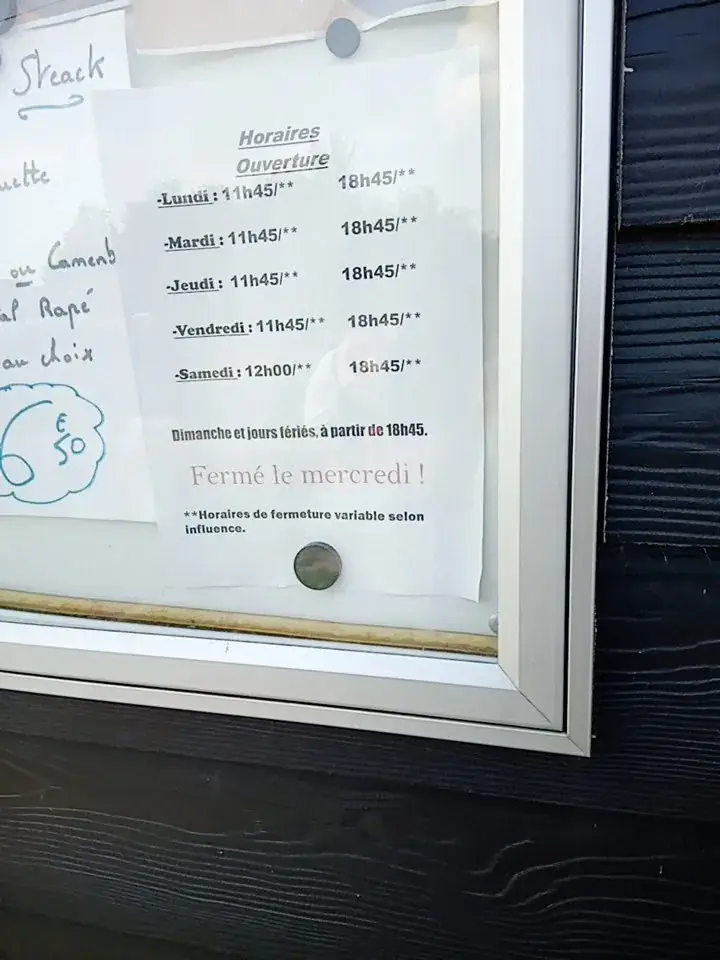 Steack
ou Camenb
Rapé
au choix
€
6 50
Horaires
Ouverture
-Lundi : 11h45/** 18h45/**
-Mardi : 11h45/** 18h45/**
-Jeudi : 11h45/** 18h45/**
-Vendredi : 11h45/** 18h45/**
-Samedi : 12h00/** 18h45/**
Dimanche et jours fériés, à partir de 18h45.
Fermé le mercredi !
**Horaires de fermeture variable selon
influence.